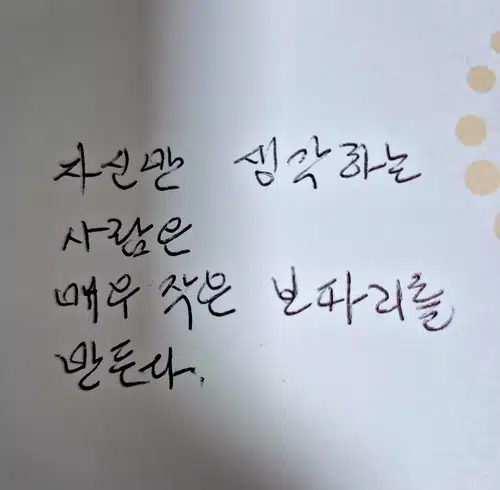 자신만 생각하는
사람은
매우 작은 보따리를
만든다.